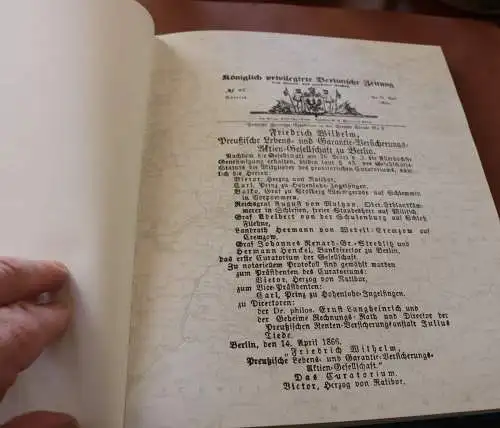 Königlich privilegirte Berlinische Zeitung
Friedrich Wilhelm,
Preußische Lebens- und Garantie-Versicherungs-
Aktien-Gesellschaft zu Berlin.
Nachdem die Gesellschaft am 26. März c. J. die Allerhöchste
Genehmigung erhalten, bilden laut § 43. des Gesellschafts-
Statuts die Mitglieder des provisorischen Curatoriums, näm-
lich die Herren:
Victor, Herzog von Ratibor,
Carl, Prinz zu Hohenlohe-Ingelfingen,
Botho, Graf zu Stolberg-Wernigerode auf Schlemmin
in Vorpommern,
Reichsgraf August von Maltzan, Ober-Erblandkäm-
merer in Schlesien, freier Standesherr auf Militsch,
Graf Adelbert von der Schulenburg auf Schloß
Filehne,
Landrath Hermann von Wedell-Cremzow auf
Cremzow,
Graf Johannes Renard-Gr.-Strehlitz und
Hermann Henckel, Bankdirector zu Berlin,
das erste Curatorium der Gesellschaft.
Zu notariellem Protokoll sind gewählt worden
zum Präsidenten des Curatoriums:
Victor, Herzog von Ratibor,
zum Vice-Präsidenten:
Carl, Prinz zu Hohenlohe-Ingelfingen,
zu Directoren:
der Dr. philos. Ernst Langheinrich und
der Geheime Rechnungs-Rath und Director der
Preußischen Renten-Versicherungsanstalt Julius
Tiede.
Berlin, den 14. April 1866.
„Friedrich Wilhelm,
Preußische Lebens- und Garantie-Versicherungs-
Aktien-Gesellschaft.“
Das Curatorium.
Victor, Herzog von Ratibor.